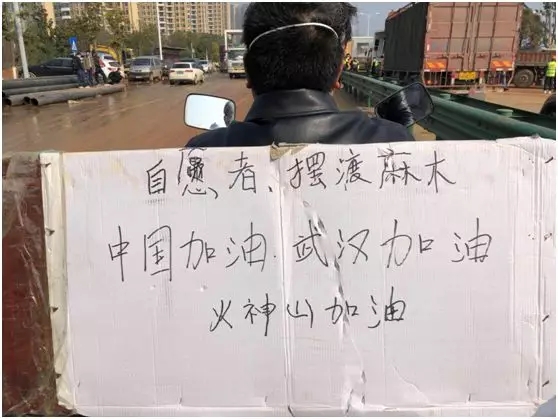 自愿者、摆渡麻木
中国加油.武汉加油
火神山加油